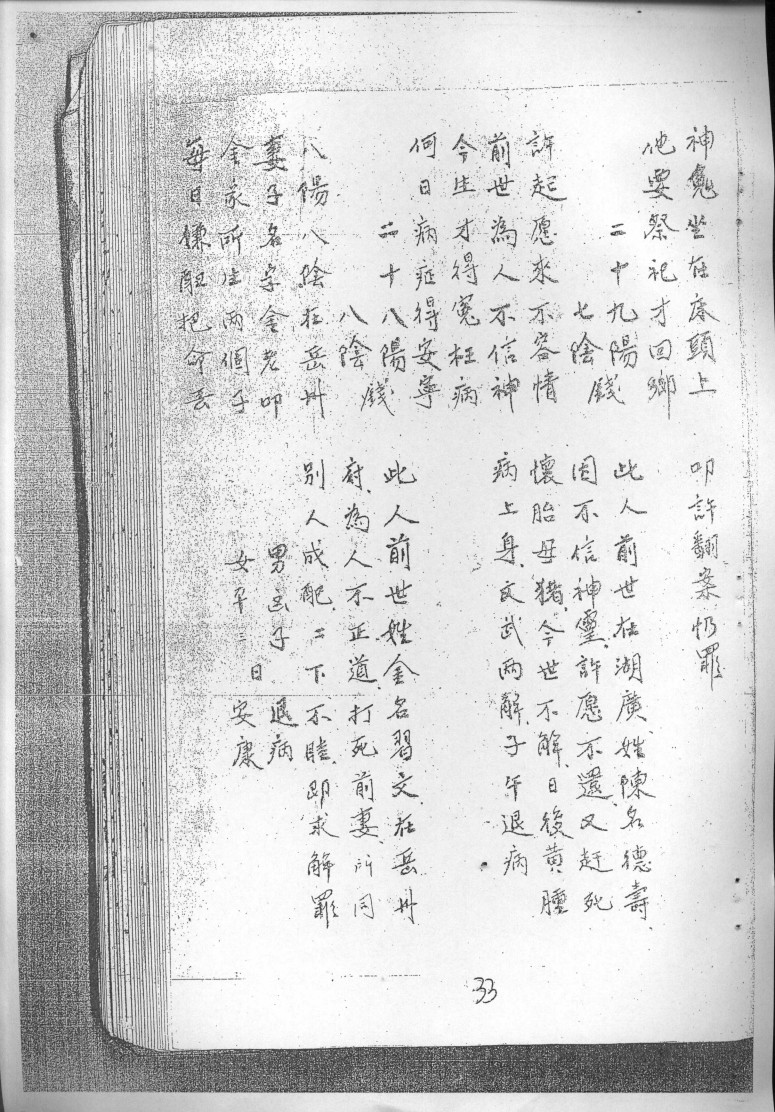 神鬼坐在床頭上
他要祭祀才回鄉
二十九陽錢
七陰
許起愿來不容情
前世為人不信神
今生才得冤枉病
何日病症得安寧
二十八陽錢
八陰
八陽八陰在岳州
妻子名字金老卯
金家所生两個子
每日把命丟
叩許翻案罪
此人前世在湖廣姓陳名德壽
因不信神靈許愿不還又赶死
懷胎母猪今世不解日後黄腫
病上身文武两解子午退病
此人前世姓金名習文在岳州
府為人不正道打死前妻所同
別人成配二下不睦即求解罪
男子退病
女三日安康
33